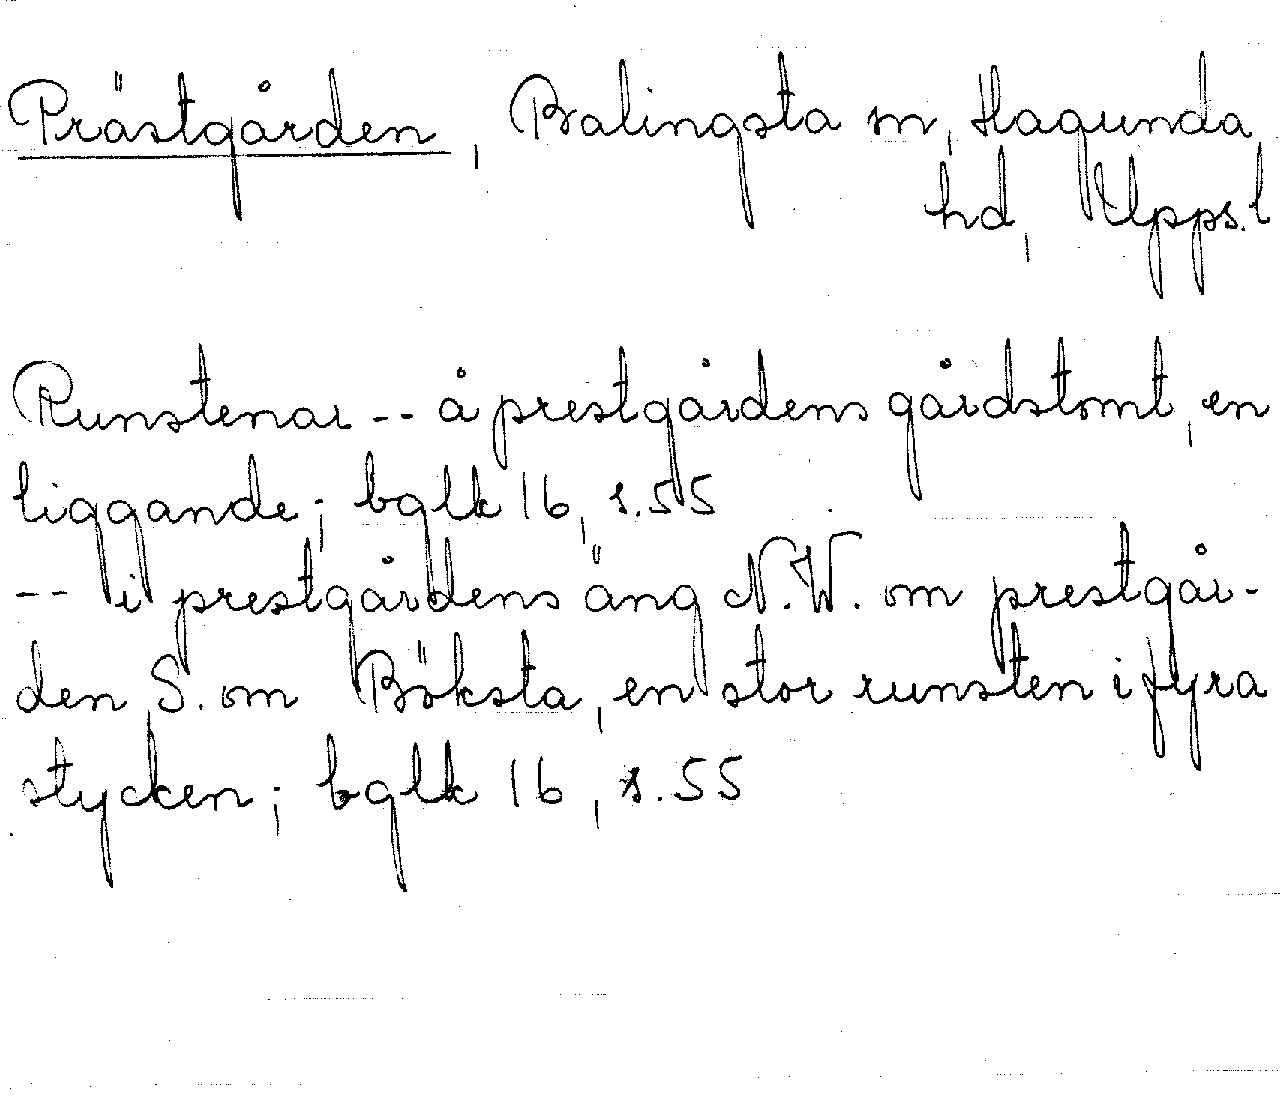 Prästgården, Balingsta sn, Hagunda
hd, Upps.l
Runstenar -- å prestgårdens gårdstomt, en
liggande; bglk 16, s.55
-- i prestgårdens äng N.W. om prestgår-
den S. om Böksta, en stor runsten i fyra
stycken; bglk 16, s.55